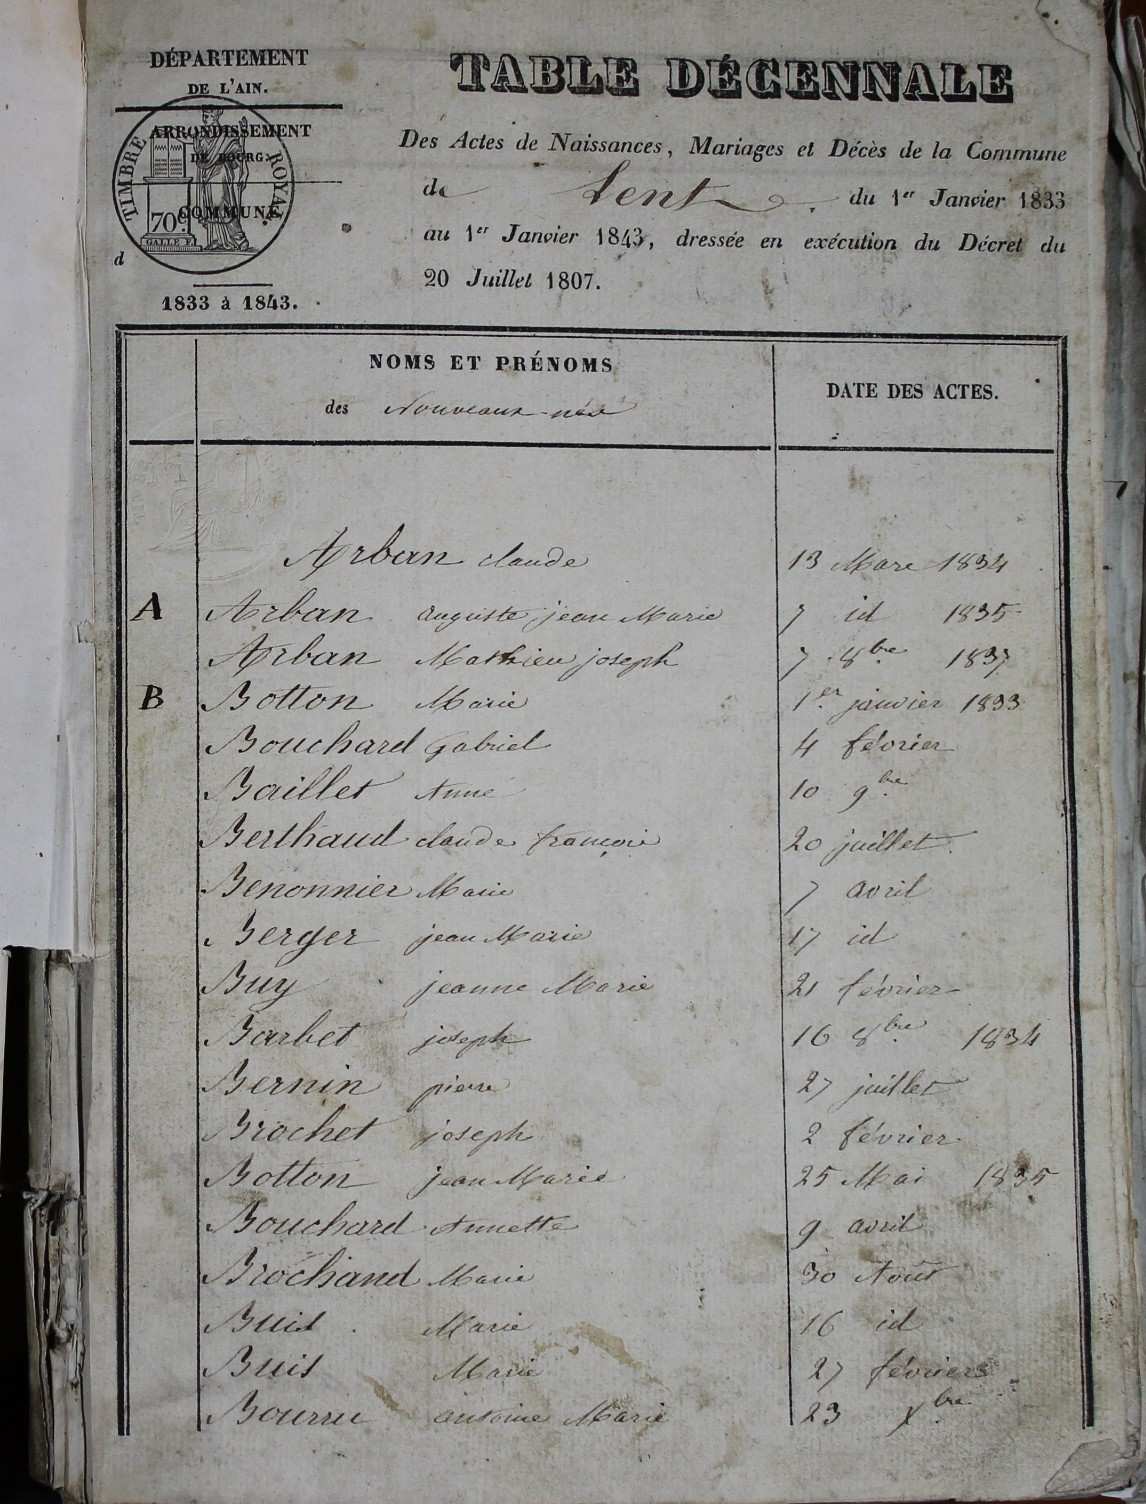 DÉPARTEMENT
DE L'AIN.
ARRONDISSEMENT
DE BOURG.
COMMUNE
d
1833 à 1843.
TIMBRE ROYAL
70c.
TABLE DÉCENNALE
Des Actes de Naissances, Mariages et Décès de la Commune
de Lent du 1er Janvier 1833
au 1er Janvier 1843, dressée en exécution du Décret du
20 Juillet 1807.
NOMS ET PRÉNOMS
des Nouveaux-nés
DATE DES ACTES.
Arban claude 13 Mars 1834
A Arban auguste jean Marie 7 id 1835
Arban Mathieu joseph 7 8bre 1837
B Botton Marie 1er janvier 1833
Bouchard Gabriel 4 février
Baillet Anne 10 9bre
Berthaud claude françois 20 juillet
Benonnier Marie 7 avril
Berger jean Marie 17 id
Buy jeanne Marie 21 février
Barbet joseph 16 8bre 1834
Bernin pierre 27 juillet
Brochet joseph 2 février
Botton jean Marie 25 Mai 1835
Bouchard Annette 9 avril
Brochand Marie 30 Août
Buis Marie 16 id
Buis Marie 27 février
Bourru antoine Marie 23 Xbre